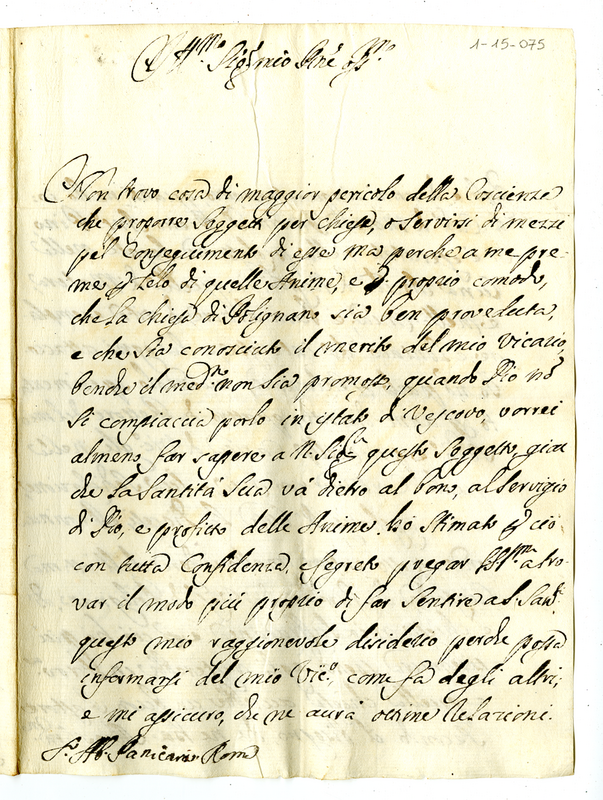 1-15-075
Ill.mo Sig.r mio P.ne Oss.mo
Non trovo cosa di maggior pericolo della Coscienza
che proporre Soggetti per Chiese, o servirsi di mezzi
pel Conseguimento di esse ma perche a me pre-
me p zelo di quelle Anime, e p proprio comodo,
che la Chiesa di Polignano sia ben proveduta,
e che sia conosciuto il merito del mio Vicario,
benche il med.mo non sia promosso, quando Dio nõ
si compiaccia porlo in istato di Vescovo, vorrei
almeno far sapere a N. Sig.re questo Soggetto, gia
che la Santità Sua và dietro al bene, al servigio
di Dio, e profitto delle Anime. hò stimato p ciò
con tutta Confidenza, e segreto pregar V.S. Ill.ma a tro-
var il modo più proprio di far sentire a S. San.tà
questo mio raggionevole disiderio perche possa
informarsi del mio Vic.o, come fà degli altri,
e mi assicuro, che ne aurà ottime relazioni.
S.r Ab. Roma